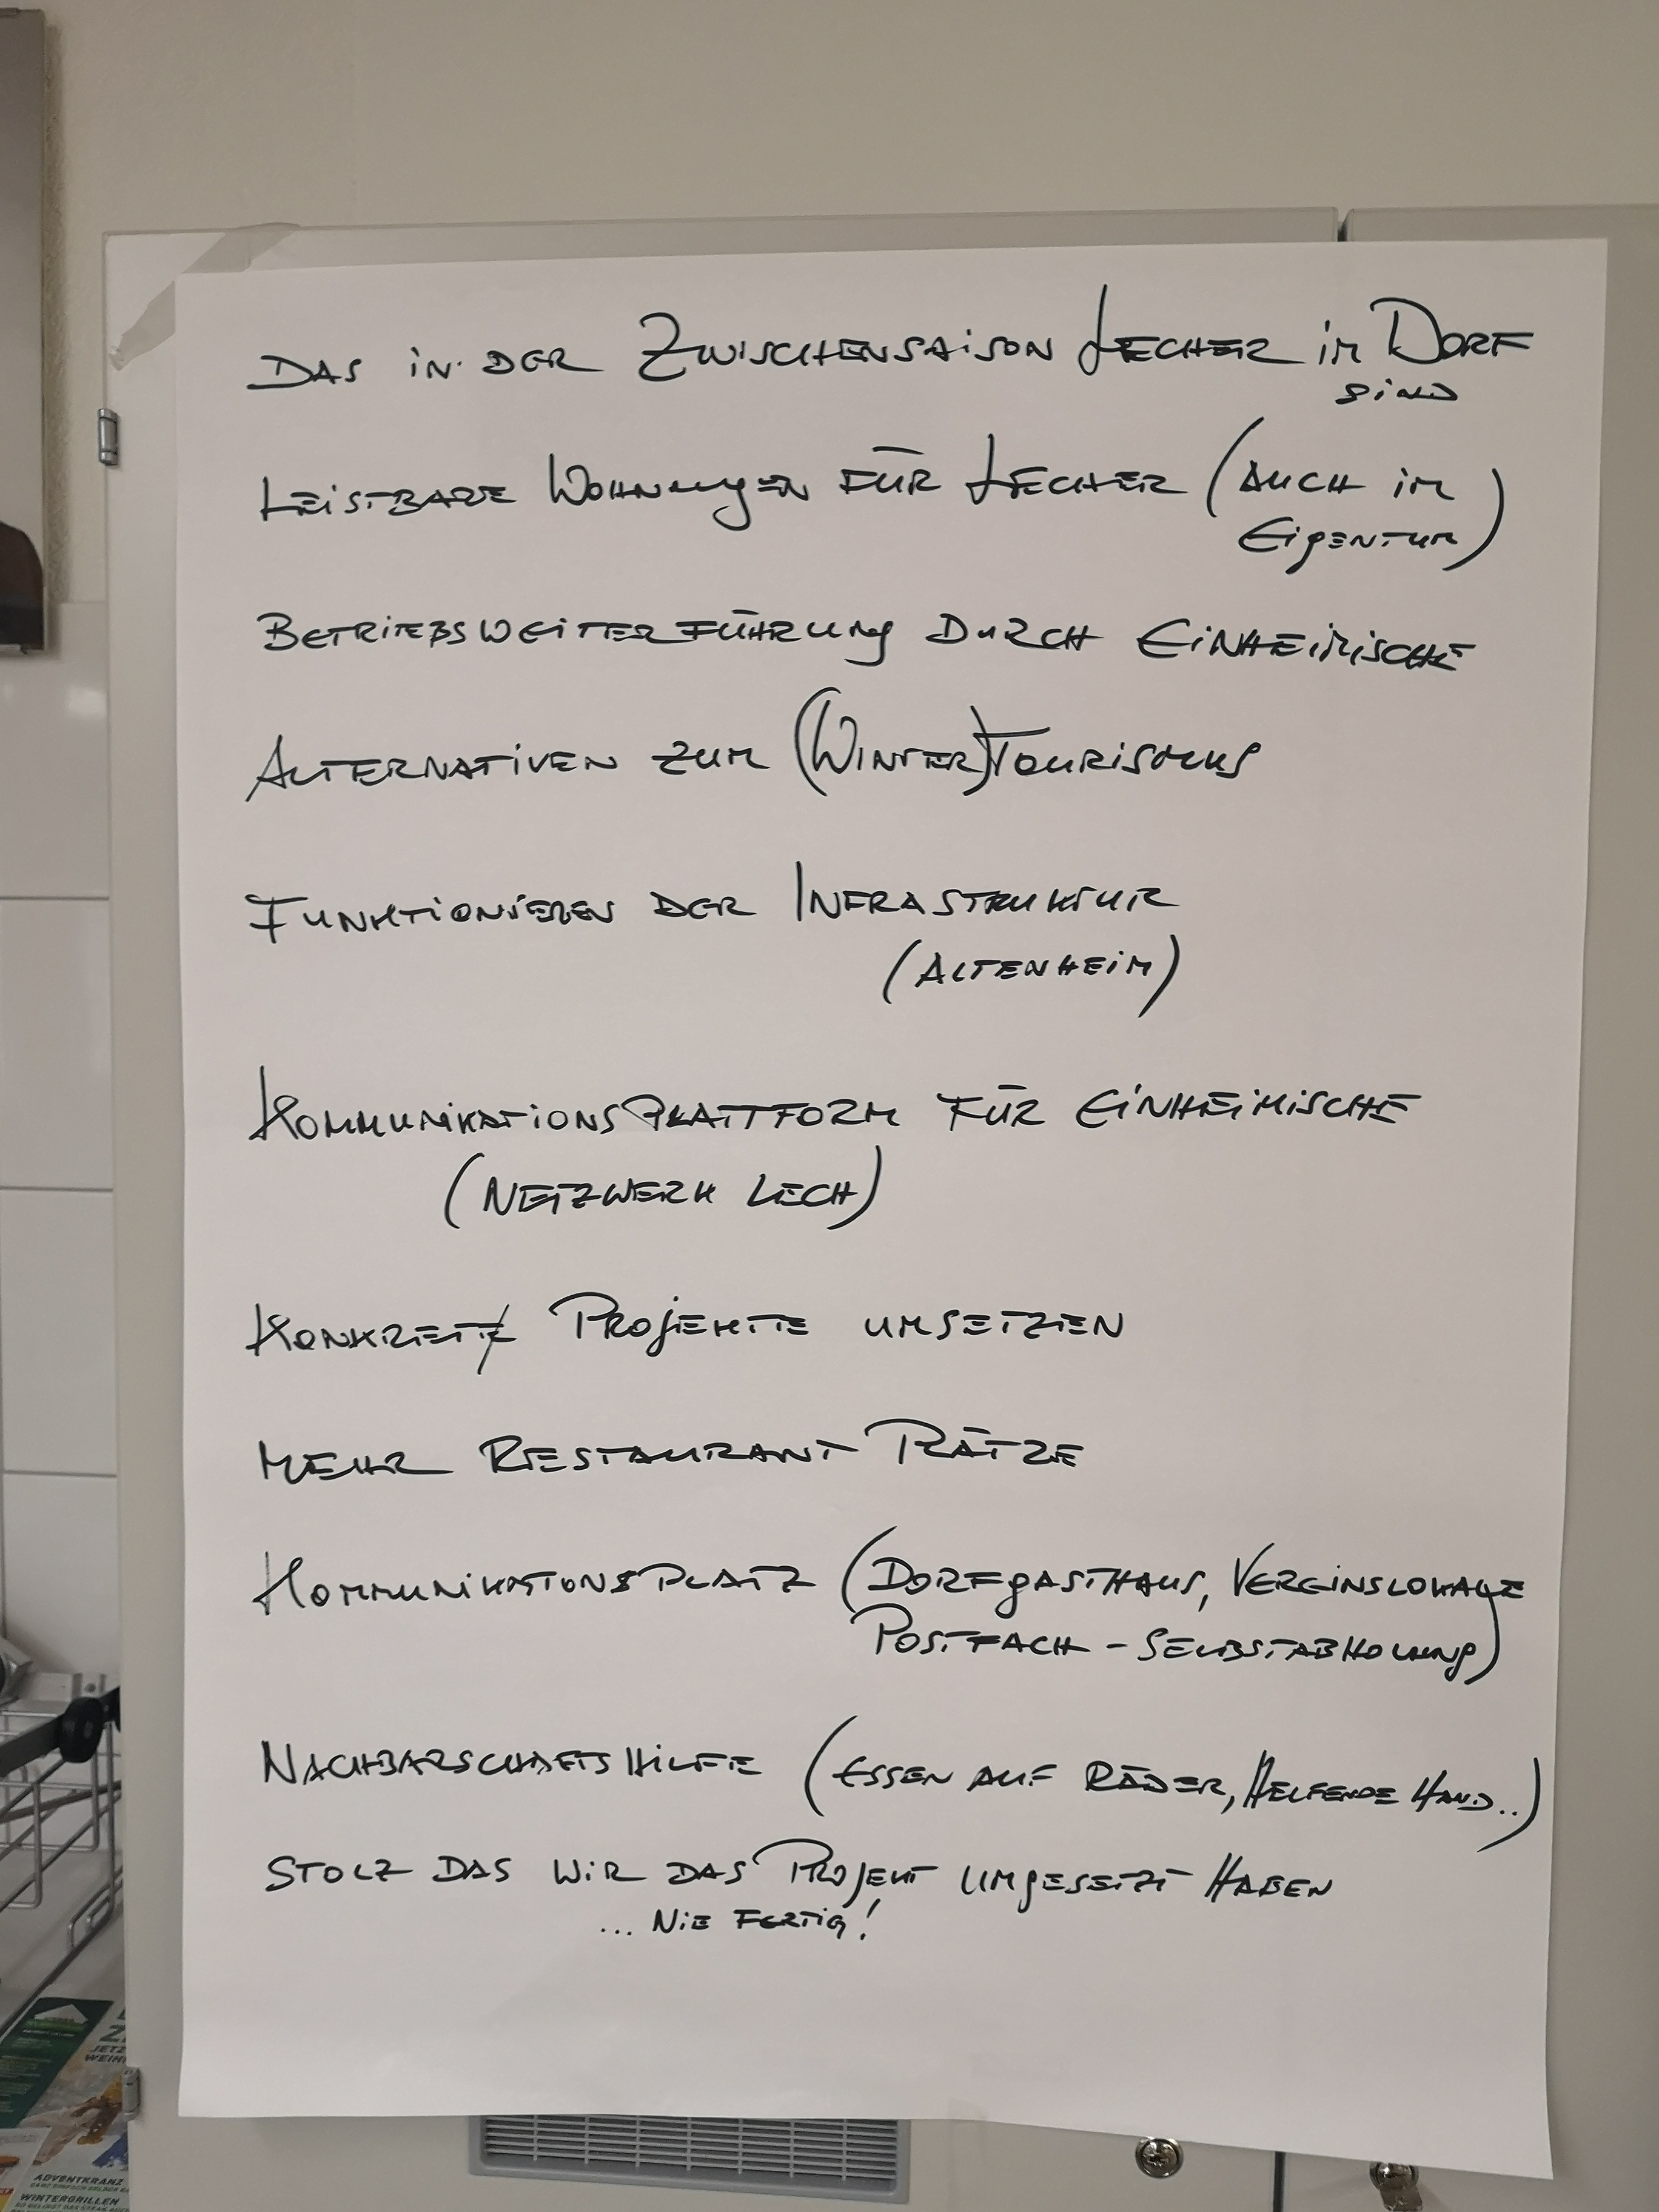 DAS IN DER ZWISCHENSAISON LECHER IM DORF
SIND
LEISTBARE WOHNUNGEN FÜR LECHER (AUCH IM
EIGENTUM)
BETRIEBSWEITERFÜHRUNG DURCH EINHEIMISCHE
ALTERNATIVEN ZUM (WINTER)TOURISMUS
FUNKTIONIEREN DER INFRASTRUKTUR
(ALTENHEIM)
KOMMUNIKATIONSPLATTFORM FÜR EINHEIMISCHE
(NETZWERK LECH)
KONKRETE PROJEKTE UMSETZEN
MEHR RESTAURANT PLÄTZE
KOMMUNIKATIONSPLATZ (DORFGASTHAUS, VEREINSLOKALE
POSTFACH - SELBSTABHOLUNG)
NACHBARSCHAFTSHILFE (ESSEN AUF RÄDER, HELFENDE HAND..)
STOLZ DAS WIR DAS PROJEKT UMGESETZT HABEN
... NIE FERTIG!
JETZ
WEIH
ADVENTKRANZ
WINTERGRILLEN